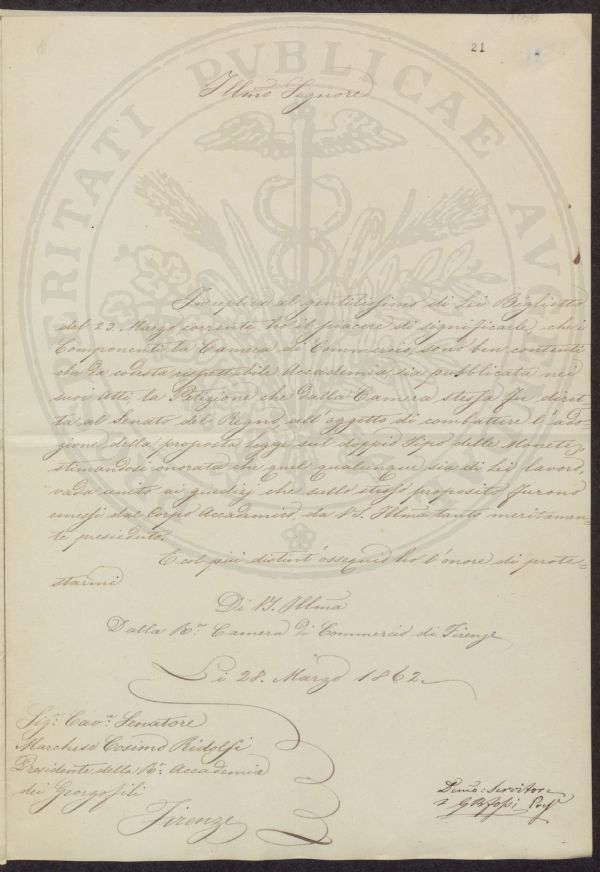 21
Illmo Signore
In replica al gentilissimo di Lei Biglietto
del 23. Marzo corrente ho il piacere di significarle, che i
Componenti la Camera di Commercio, sono ben contenti
che da codesta rispettabile Accademia sia pubblicata nei
suoi Atti la Petizione che dalla Camera stessa fu diret=
ta al Senato del Regno all'oggetto di combattere l'ado=
zione della proposta legge sul doppio Tipo delle Monete,
stimandosi onorata che quel qualunque sia di Lei lavoro,
vada unito ai giudizj che sullo stesso proposito furono
emessi dal Corpo Accademico, da V.S. Illma tanto meritamen=
te presieduto.
E col più distint'ossequio ho l'onore di prote=
starmi
Di V.S. Illma
Dalla Ra. Camera di Commercio di Firenze
Li 28. Marzo 1862.
Sigr. Cavre. Senatore
Marchese Cosimo Ridolfi
Presidente della Ra. Accademia
dei Georgofili
Firenze
Devmo: Servitore
VERITATI PVBLICAE